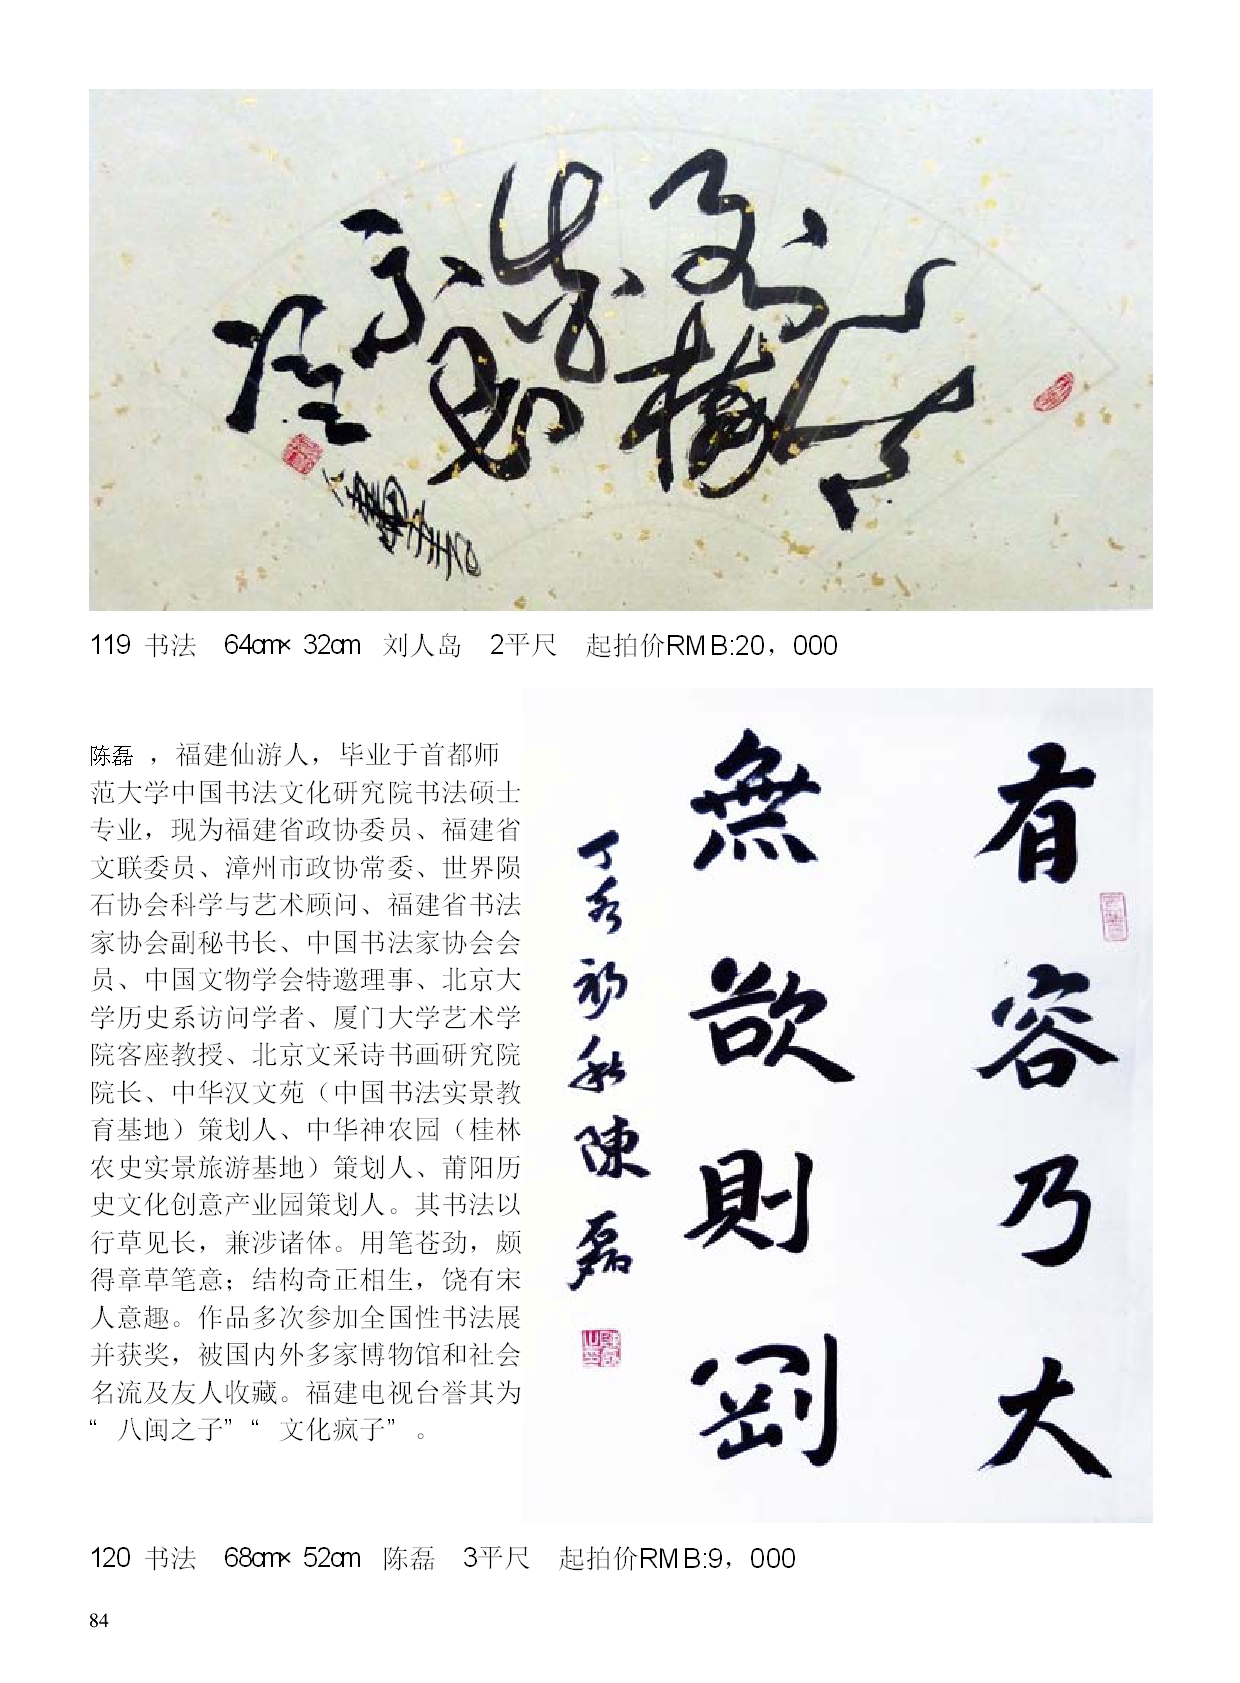 119 书法 64cm×32cm 刘人岛 2平尺 起拍价RMB:20，000
陈磊，福建仙游人，毕业于首都师
范大学中国书法文化研究院书法硕士
专业，现为福建省政协委员、福建省
文联委员、漳州市政协常委、世界陨
石协会科学与艺术顾问、福建省书法
家协会副秘书长、中国书法家协会会
员、中国文物学会特邀理事、北京大
学历史系访问学者、厦门大学艺术学
院客座教授、北京文采诗书画研究院
院长、中华汉文苑（中国书法实景教
育基地）策划人、中华神农园（桂林
农史实景旅游基地）策划人、莆阳历
史文化创意产业园策划人。其书法以
行草见长，兼涉诸体。用笔苍劲，颇
得章草笔意；结构奇正相生，饶有宋
人意趣。作品多次参加全国性书法展
并获奖，被国内外多家博物馆和社会
名流及友人收藏。福建电视台誉其为
“八闽之子”“文化疯子”。
有容乃大
無欲則剛
丁亥初秋陳磊
120 书法 68cm×52cm 陈磊 3平尺 起拍价RMB:9，000
84